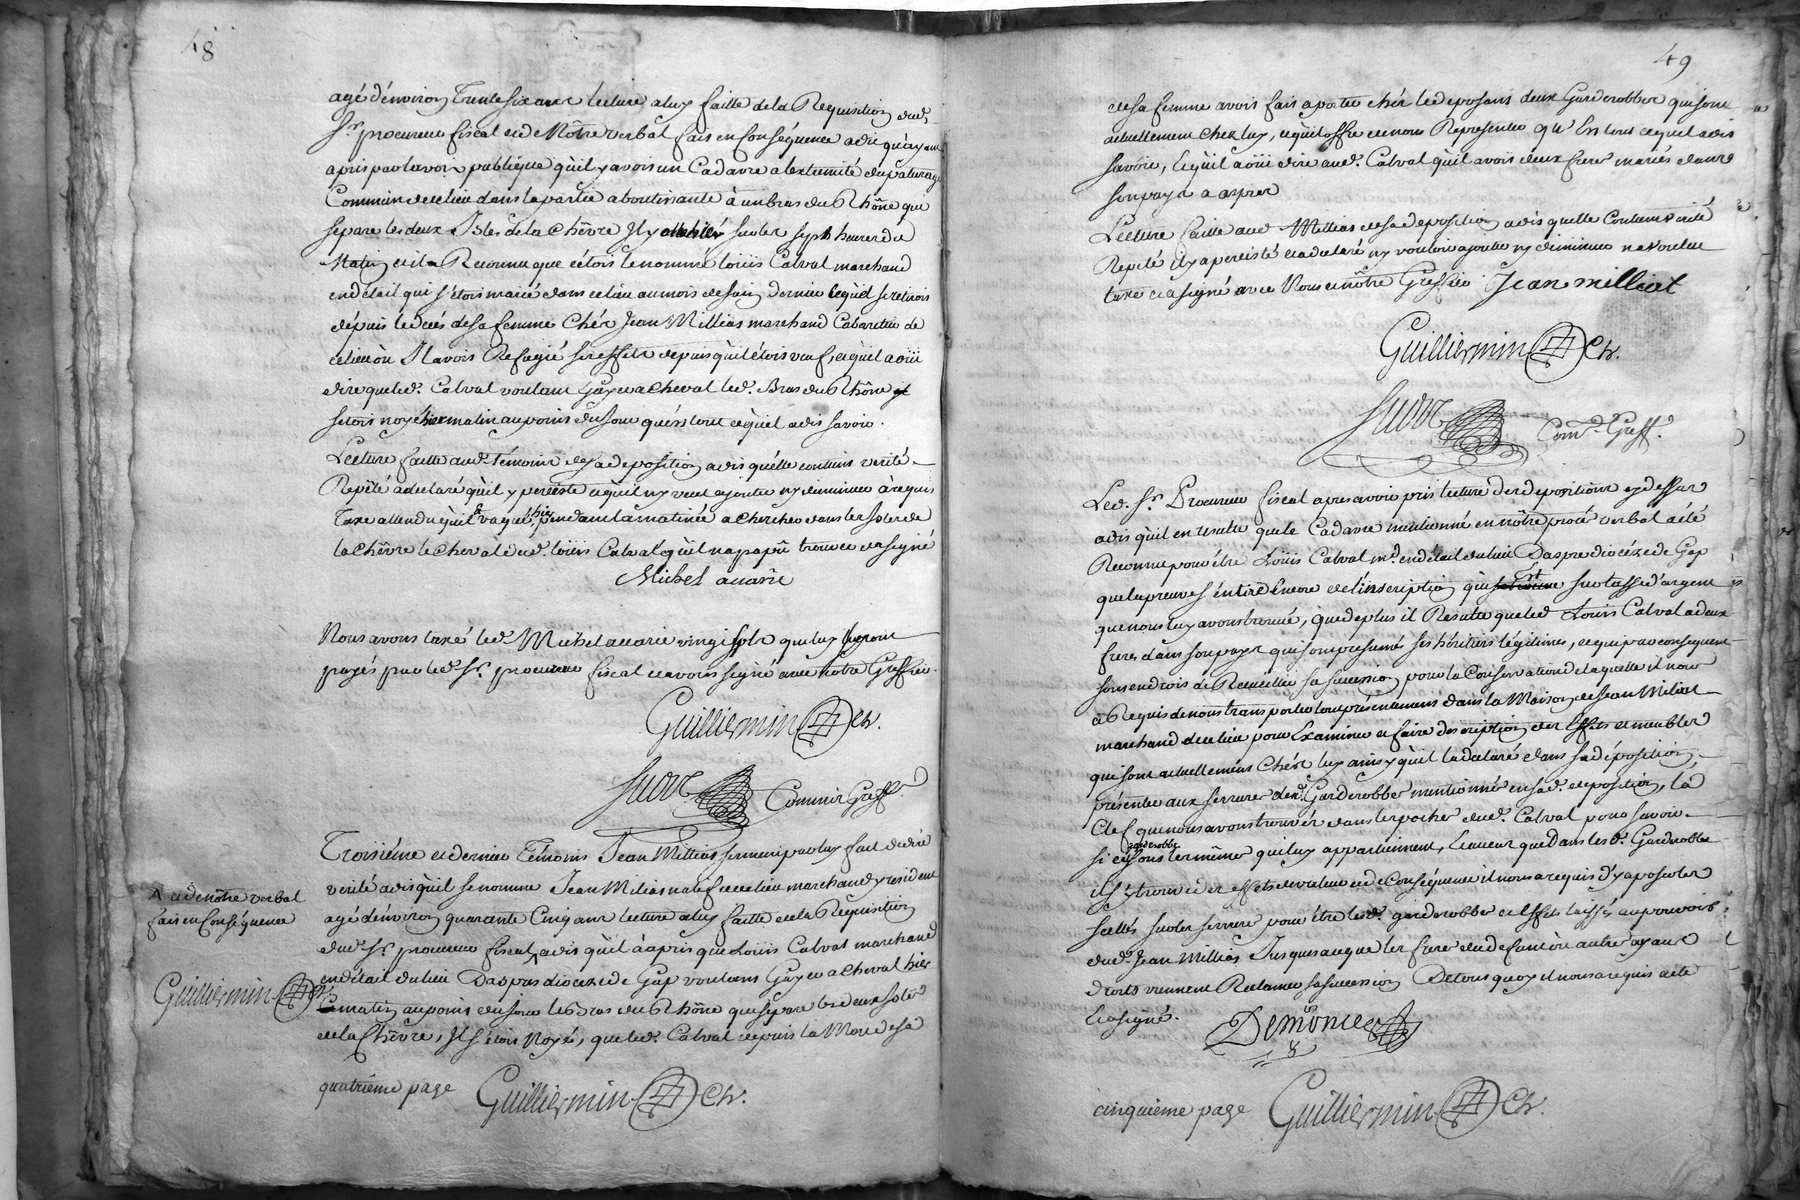 48
agé d'environ Trente six ans lecture a luy faitte de la Requisition dud.
Sr. procureur fiscal et de Nôtre verbal fait en Conséquence a dit qu'ayant
apris par la voix publique qu'il y avoit un Cadavre a l'extremité du paturage
Commun de ce lieu dans la partie aboutissante à un bras du Rhône que
separe les deux Isles de la Chêvre Il y alla hier sur les sept heures du
Matin et il a Reconnu que c'étoit le nommé loüis Calvat marchand
en détail qui s'étoit marié dans ce lieu au mois de Juin dernier lequel se retiroit
dépuis le decés de sa femme Chés Jean Milliat marchand Cabaretier de
ce lieu où Il avoit Refugié ses effets depuis qu'il étoit veuf, et qu'il a oüi
dire que led. Calvat voulant Gayer a Cheval led. Bras du Rhône
s'etoit noyé hier matin au point du Jour qu'est tout ce qu'il a dit savoir.
Lecture faitte aud. Témoin de sa deposition a dit qu'elle contient verité
Repété a declaré qu'il y persiste et qu'il n'y veut ajouter ny diminuer à requis
taxe attendu qu'il a vaqué hier pendant la matinée a chercher dans les Isles de
la Chêvre le cheval dud. loüis Calvat qu'il n'a pas pû trouver et a signé
Michel avarie
Nous avons taxé led. Michel avarie vingt sols que luy seront
payés par led. Sr. procureur fiscal et avons signé avec notre Greffier.
Guilliermin Ch.
Commis Greffr
Troisième et dernier Témoin Jean Milliat serment par luy fait de dire
verité a dit qu'il se nomme Jean Miliat natif de ce lieu marchand y resident
agé d'environ quarante Cinq ans lecture a luy faitte de la Requisition
dud. Sr. procureur fiscal, a dit qu'il à apris que Louis Calvat marchand
en détail du lieu Daspres diocéze de Gap voulant Gayer a Cheval hier
matin au point du jour le Bras du Rhône que separe les deux Isles
de la Chêvre, Il s'étoit Noyé, que led. Calvat depuis la Mort de sa
A et de nôtre verbal
fait en Conséquence
Guilliermin Ch.
quatrième page Guilliermin Ch.
49
de sa femme avoit fait aporter chés le deposant deux Garderobbes qui sont
actuellement chez luy, et qu'il offre de nous Representer qu'Est tout ce qu'il a dit
savoir, Et qu'il a oüi dire aud. Calvat qu'il avoit deux freres mariés dans
son pays a aspres
Lecture faitte aud. Milliat de sa deposition a dit qu'elle Contient verité
Repété il y a persisté et a declaré n'y vouloir ajouter ny diminuer n'a voulu
taxe et a signé avec Nous et nôtre Greffier Jean milliat
Guilliermin Ch.
Comis Greff.
Led. Sr. Procureur fiscal apres avoir pris lecture des depositions cy dessus
a dit qu'il en resulte que le Cadavre mentionné en nôtre procès verbal a été
Reconnu pour être Loüis Calvat md. en détail du lieu Daspre diocéze de Gap
que la preuve s'en tire Encore de l'inscription qui Est sur la tasse d'argent
que nous luy avons trouvé, que de plus il Resulte que led. Louis Calvat a deux
freres dans son pays qui sont presumés ses héritiers légitimes, et qui par consequent
sont en droit de Recueillir sa succession pour la Conservation de laquelle il nous
à Requis de nous transporter tout présentement dans la Maison de Jean Miliat
marchand de ce lieu pour Examiner et faire description des Effets et meubles
qui sont actuellement Chés luy ainsy qu'il l'a declaré dans sa déposition,
présenter aux serrures desd. Garderobbes mentionnés en sad. deposition, la
Clef que nous avons trouvér dans les poches dud. Calvat pour savoir
si ces garderobbes sont les mêmes qui luy appartiennent, Et au cas que dans lesd. Garderobbe
il s'y trouve des effets de valeur et de Conséquence il nous a requis d'y aposer les
scellés sur les serrures pour être lesd. garderobbes et Effets laissés au pouvoir
dud. Jean Milliat Jusques a ce que les freres du defunt ou autre ayant
droits viennent Reclamer sa succession De tout quoy il nous a requis acte
Et a signé.
Demonier
cinquième page Guilliermin Ch.